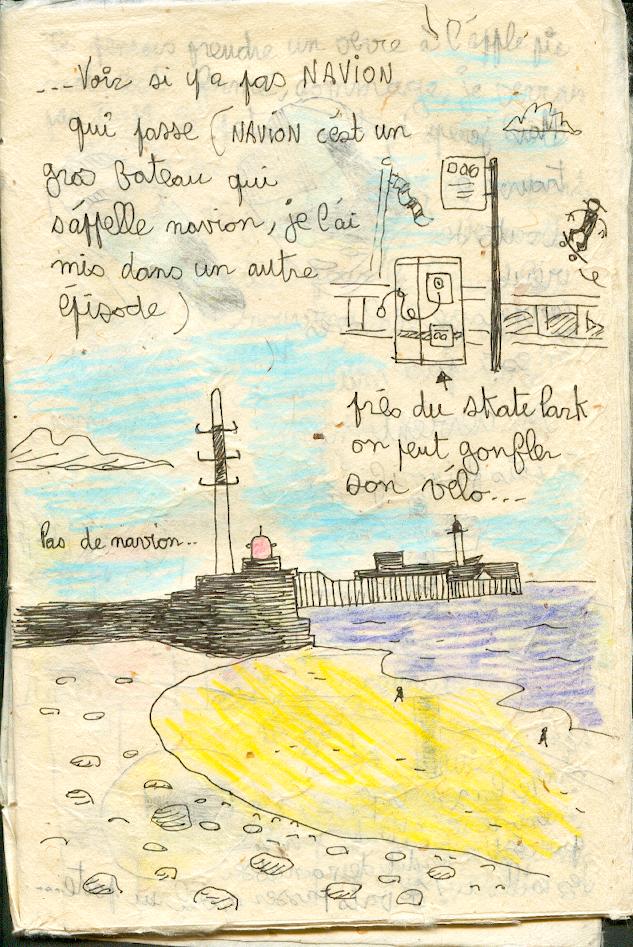 ...Voir si y'a pas NAVION
qui passe (NAVION c'est un
gros bateau qui
s'appelle navion, je l'ai
mis dans un autre
épisode)
près du skate Park
on peut gonfler
son vélo...
Pas de navion...